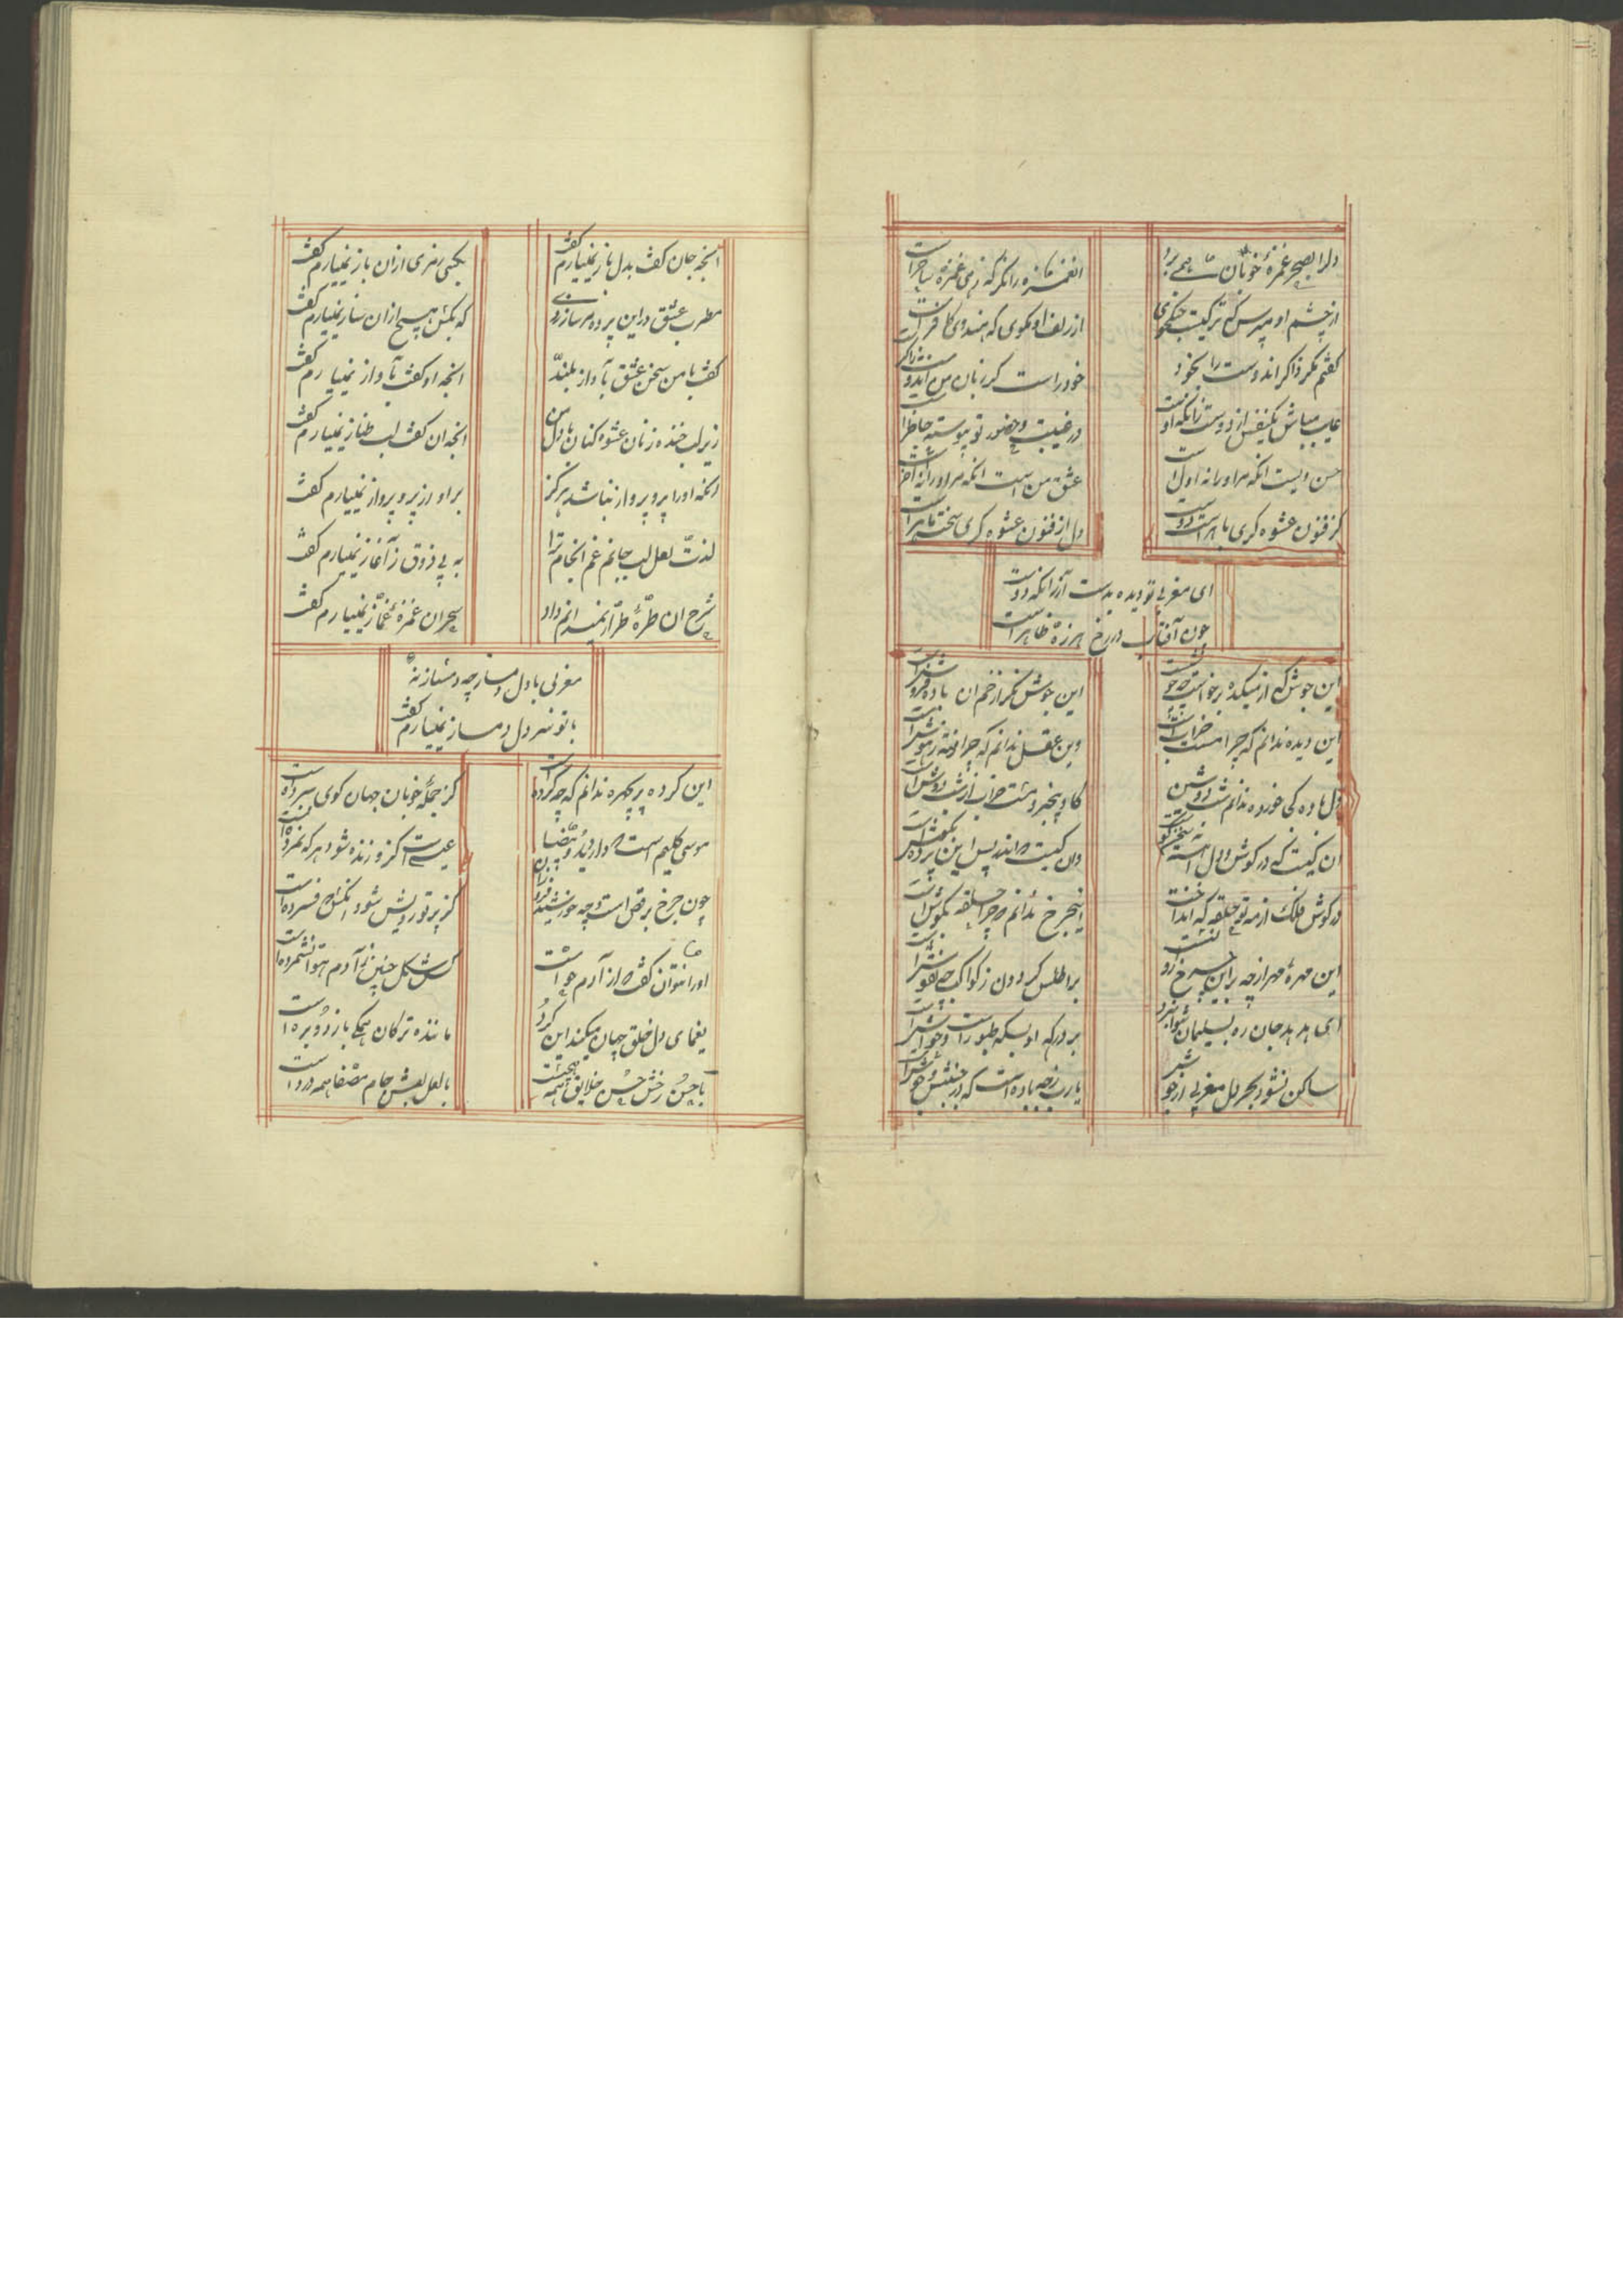 دلرا بسحر غمزهٔ خوبان همی برد
انغمزه را نگر که زهی غمزه ساحراست
از چشم او مپرس که ترکیست جنگجوی
از زلف او مگوی که هندوی کافرست
کفتم مکر ذاکر اند دوست را بخود
خود راست کز زبان من ایدوست ذاکر
غایب مباش یکنفس از دوست زانکه اوست
در غیبت و حضور تو پیوسته حاظر
حسن ویست انکه مر او را نه اولست
عشق من است انکه مر او را نه اخر است
کز فنون عشوه کری ماهر است دوست
دل از فنون عشوه کری سخت ماهر است
ای مغربی تو دیده بدست آر زانکه دوست
چون آفتاب در رخ هر ذره ظاهر است
این جوش که از میکده برخواست چه جوشست
این جوش مکر از خم ان باده فروش است
این دیده ندانم که چرا مست خرابست
وین عقل ندانم که چرا رفته ز هوش است
دل باده کی خورده ندانم شب دوشین
کاو بیخبر و مست خراب از شب دوش است
ان کیست که در کوش دل اهسته سخنکوست
وان کیست که اندر پس این پرده بکوش است
در کوش فلک از مه نو حلقه که انداخت
اینچرخ ندانم که چرا حلقه بکوش است
این مهرهٔ مهر از چه بر این چرخ زر اندست
بر اطلس کردون ز کواکب چه نقوش است
ای هدهد جان ره بسلیمان نتوان برد
بر درکه او بسکه طیور است و وحوش است
ساکن نشود بحر دل مغربی از جوش
یا رب ز چه باد است که در جنبش و جوش است
انچه جان کفت بدل باز نمییارم کفت
بکسی رمزی ازان باز نمییارم کفت
مطرب عشق در این پرده مرا سازی زد
که بکس هیچ ازان ساز نمییارم کفت
کفت با من سخن عشق بآواز بلند
انچه او کفت بآواز نمییارم کفت
زیر لب خنده زنان عشوه کنان با دل من
انچه ان کفت لب طناز نمییارم کفت
انکه او را پر و پرواز نباشد هرکز
بر او از پر و پرواز نمییارم کفت
لذت لعل لب جانم غم انجام ترا
به بی ذوق ز آغاز نمییارم کفت
شرح ان طرهٔ طرار نمیدانم داد
سحر ان غمزهٔ غماز نمییارم کفت
مغربی با دل دمساز چه دمساز نه
با تو سر دل دمساز نمییارم کفت
این کرده پریچهره ندانم که چه کرده است
کز جملهٔ خوبان جهان کوی سپرده است
موسی کلیم است که دارد ید و بیضا
عیسی است کز و زنده شود هر که نمرده است
چون چرخ برقص است و چه خورشید فروزان
کز پرتو رویش شود انکس که فسرده است
او را نتوان کفت که از آدم و حواست
کس شکل چنین ز آدم و حوا نشمرده است
یغمای دل خلق جهان میکند این کرد
ماننده ترکان همکی بازد و برده است
با حسن رخش حسن خلایق همه هیچست
با لعل لبش جام مصفا همه درد است